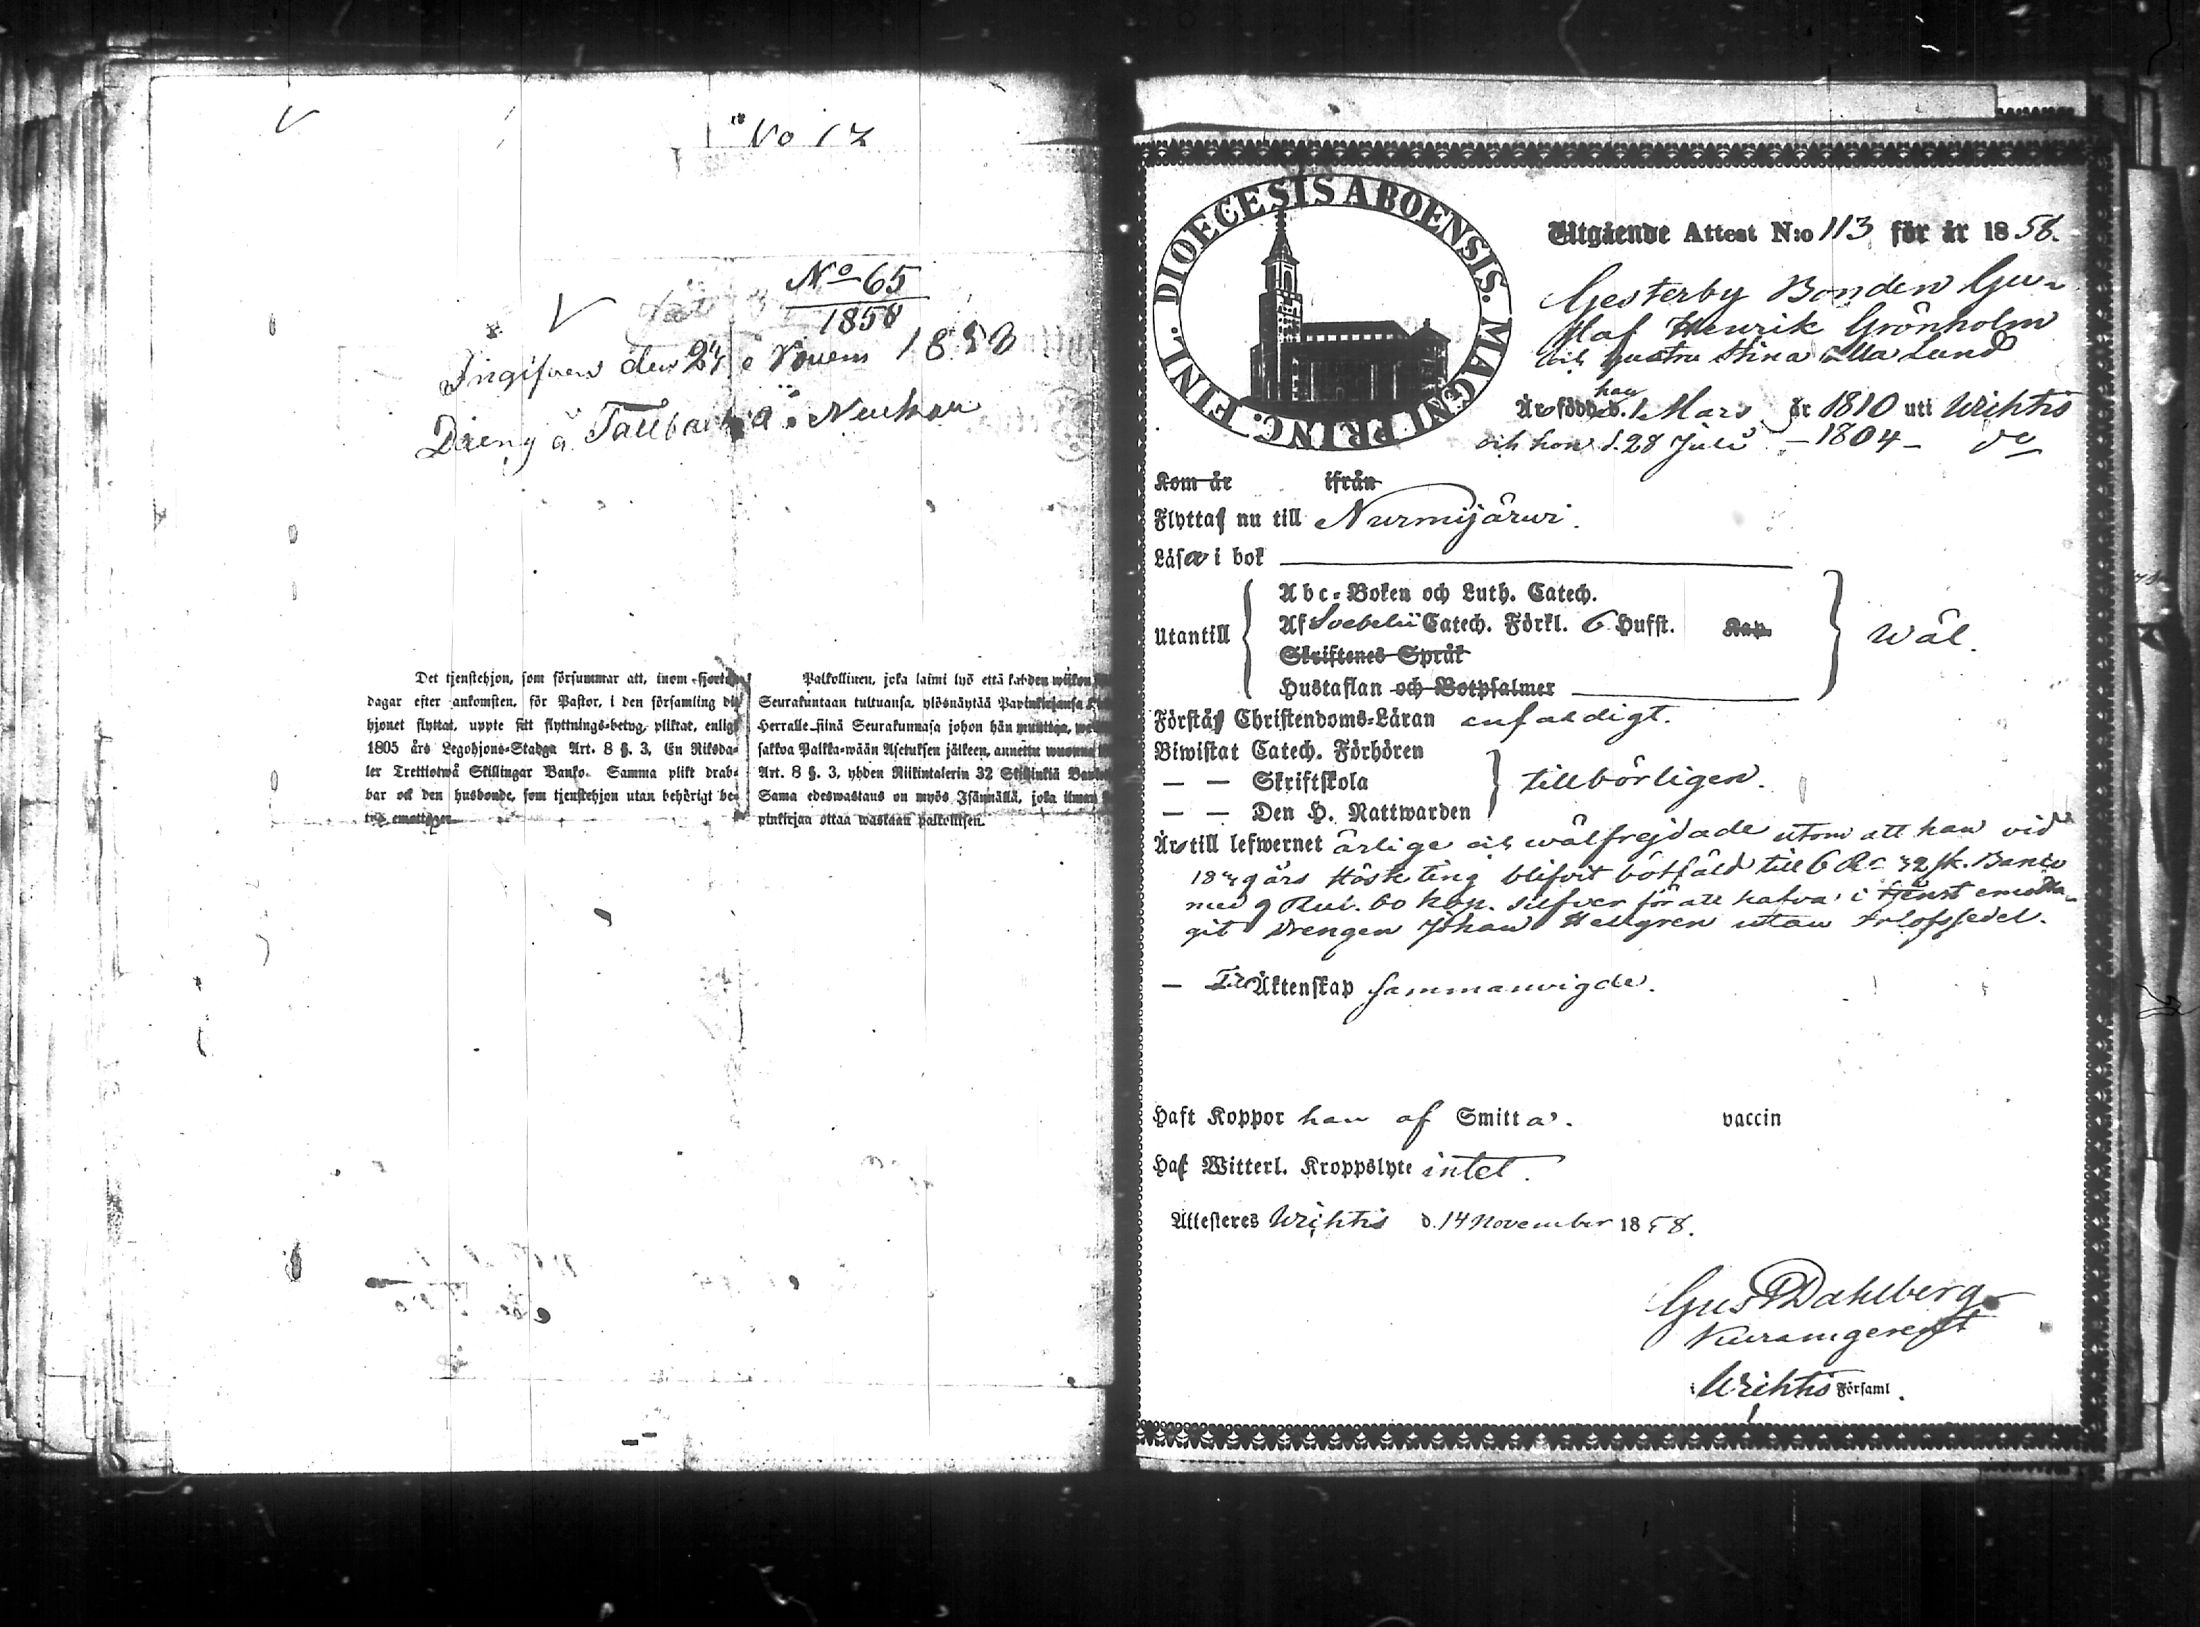 No 12
No 65
1858
Ingifven den 24 Novem 1858
Dreng å
Det tjenstehjon, som försummar att, inom fjorton
dagar efter ankomsten, för Pastor, i den församling dit
hjonet flyttat, uppte sitt flyttnings-betyg, pliktat, enligt
1805 års Legohjons-Stadga Art. 8 §. 3, En Riksda-
ler Trettiotwå Skillingar Banko. Samma plikt drab-
bar ock den husbonde, som tjenstehjon utan behörigt be-
tyg emottager
Palkollinen, joka laimi lyö että kahden wiikon
Seurakuntaan tultuansa, ylösnäytää Papinkirjansa
Herralle siinä Seurakunnasa johon hän muuttaa,
sakkoa Palkka-wään Asetuksen jälkeen, annettu wuonna
Art. 8 §. 3, yhden Riikintalerin 32 Skillinkiä
Sama edeswastaus on myös Isännällä, joka ilman
pinkirjaa ottaa wastaan palkollisen.
DIOECESIS ABOENSIS. MAGNI PRINC. FINL.
Utgående Attest N:o 113 för år 1858.
Gesterby Bonden Gu-
staf Henrik Grönholm
och hustru Stina Lund
han
Äro födde d. 1 Mars år 1810 uti Wichtis
och hon d. 28 Juli - 1804 - do
Kom år ifrån
Flytta nu till Nurmijärwi.
Läsa i bok
Utantill
Abc-Boken och Luth. Catech.
Af Svebelii Catech. Förkl. 6 Hufst. Kap.
Skriftenes Språk
Hustaflan och Botpsalmer
Wäl.
Förstå Christendoms-Läran enfaldigt.
Biwistat Catech. Förhören
— — Skriftskola
— — Den H. Nattwarden
tillbörligen.
Äro till lefwernet ärlige och wälfrejdade utom att han vid
1849 års Höste ting blifvit bötfäld till 6 R. 32 sk. Banco
med 9 Rub. 60 kop. silfver för att hafva i tjenst emotta-
git Drengen Johan Hellgren utan Orlofssedel.
— Till Äktenskap sammanvigde.
Haft Koppor han af Smitta. vaccin
Haf Witterl. Kroppslyte intet.
Attesteres Wichtis d. 14 November 1858.
Gust Dahlberg
i Wichtis Församl.